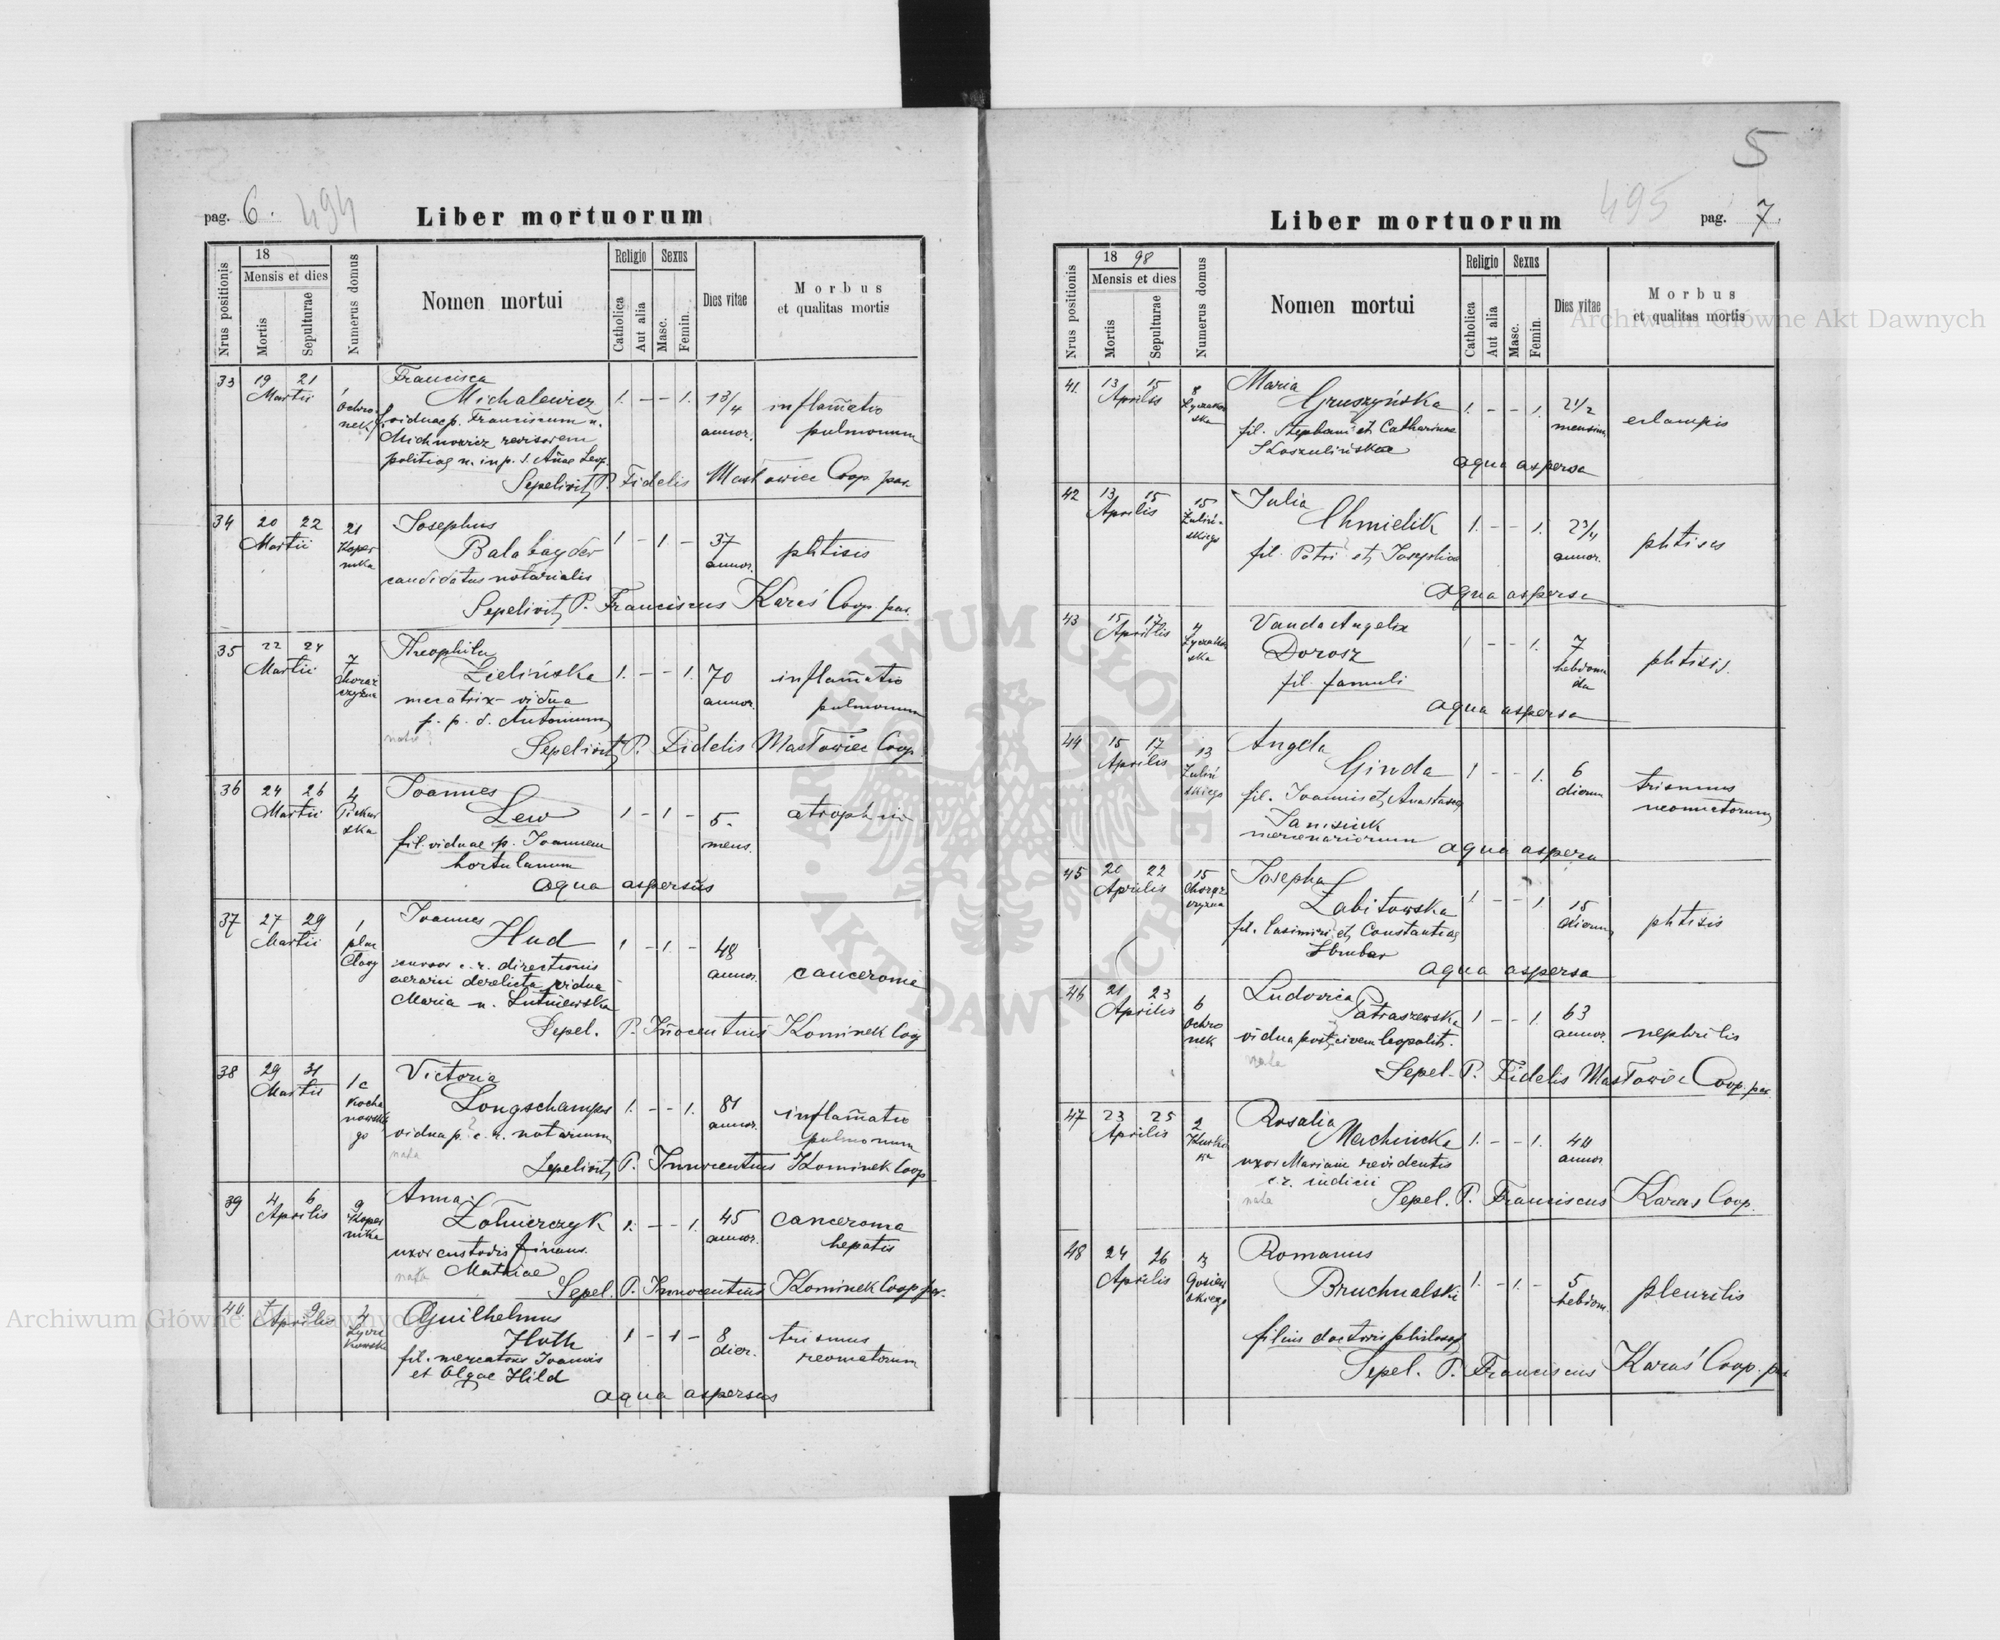 pag. 6. 494
Liber mortuorum
Nrus positionis
18
Mensis et dies
Mortis
Sepulturae
Numerus domus
Nomen mortui
Religio
Catholica
Aut alia
Sexus
Masc.
Femin.
Dies vitae
Morbus
et qualitas mortis
33 19 21 Martii 1 Ochro
nek
Francisca
Michalewicz 1. – – 1. 1 3/4 annor. inflam̄atio
pulmonum
viduae p. Franciscum n.
Michnowicz revisorem
politiae n. in p. S. Annae Leop.
Sepelivit P. Fidelis Mastowiec Coop. par.
34 20 22 Martii 21 Koper
nika
Josephus
Balabayder 1 – 1. – 37 annor. phtisis
candidatus notarialis
Sepelivit P. Franciscus Karaś Coop. par.
35 22 24 Martii 7 Choraz
czyzna
Theophila
Zielińska 1. – – 1. 70 annor. inflam̄atio
pulmonum
vidua
p. p. d. Antonium
nata ?
Sepelivit P. Fidelis Mastowiec Coop.
36 24 26 Martii 4 Piekar
ska
Joannes
Lew 1 – 1 – 5 mens. atrophia
fil. viduae p. Joannem
hortulanum
aqua aspersus
37 27 29 Martii 1 plac
Clowy
Joannes
Hud 1 – 1. – 48 annor. canceroma
cursor c. r. directionis
aerarii derelicta vidua
Maria n. Lutniewska
Sepel. P. In̄ocentius Kominek Coop
38 29 31 Martii 1c Kocha
nowskie
go
Victoria
Longschamps 1. – – 1. 81 annor. inflam̄atio
pulmonum
vidua p. c. r. notarium
nata
Sepelivit P. Innocentius Kominek Coop
39 4 6 Aprilis 9 Koper
nika
Anna
Żołnierczyk 1. – – 1. 45 annor. canceroma
hepatis
uxor custodis finans.
nata Mathiae
Sepel. P. Innocentius Kominek Coop. par.
40 7 9 Aprilis 4 Lycza
kowska
Guilhelmus
Huth 1 – 1 – 8 dier. trismus
neonatorum
fil. mercatoris Joannis
et Olgae Hild
aqua aspersus
5
495
Liber mortuorum
pag. 7.
Nrus positionis
18 98
Mensis et dies
Mortis
Sepulturae
Numerus domus
Nomen mortui
Religio
Catholica
Aut alia
Sexus
Masc.
Femin.
Dies vitae
Morbus
et qualitas mortis
41. 13 15 Aprilis 8 Lyczakow
ska
Maria
Gruszyńska 1. – – 1. 2 1/2 mensium eclampis
fil. Stephani et Catharinae
Koszulińska
aqua aspersa
42 13 15 Aprilis 15 Zuliń-
skiego
Julia
Chmielik 1. – – 1. 2 3/4 annor. phtisis
fil. Petri et Josephae
aqua aspersa
43 15 17 Aprilis 4 Lyczakow
ska
Vanda Angela
Dorosz 1 – – 1. 7 hebdoma
da phtisis.
fil. famuli
aqua aspersa
44 15 17 Aprilis 13 Zuliń
skiego
Angela
Ginda 1 – – 1. 6 dierum trismus
neonatorum
fil. Joannis et Anastasiae
Janisiuk
mercenariorum
aqua aspersa
45 20 22 Aprilis 15 Chorąż
czyzna
Josepha
Zabitowska 1 – – 1 15 dierum phtisis
fil. Casimiri et Constantiae
aqua aspersa
46 21 23 Aprilis 6 Ochro
nek
Ludovica
Patraszewska 1 – – 1. 63 annor. nephritis
vidua post civem leopolit.
nata
Sepel. P. Fidelis Mastowiec Coop. par.
47 23 25 Aprilis 2 Kurko
wa
Rosalia
Machnicka 1. – – 1. 44 annor.
uxor Mariani revidentis
c. r. iudicii
nata Sepel. P. Franciscus Karas Coop.
48 24 26 Aprilis 3 Gosiew
skiego
Romanus
Bruchnalski 1. – 1. – 5 hebdom. pleuritis
filius doctoris philosoph
Sepel. P. Franciscus Karaś Coop. par
Archiwum Główne Akt Dawnych
Archiwum Główne Akt Dawnych
ARCHIWUM GŁÓWNE AKT DAWNYCH